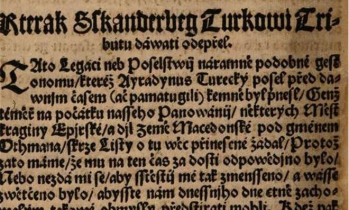 Kterak Sskanderbeg Turkowi Tri-
butu dáwati odepřel.
TAto Legací neb Poselstwij náramně podobné gest
onomu/ kteréž Ayradynus Turecký posel před da-
wnjm časem (ač pamatugili) kemně byl přnesl/ Genž
témněř na počátku nassého Panowánij/ některých Měst
kraginy Epjrské/ a djl Země Macedonské pod gménem
Othmana/ skrze Listy o tu wěc přinesené žádal/ Protož
zato máme/ že mu na ten čas za dosti odpowědjno bylo/
Nebo nezdá mi se/ aby sstěstij mé tak zmensseno/ a wásse
zwětčeno bylo/ abysste nám dnessnjho dne etně zacho-